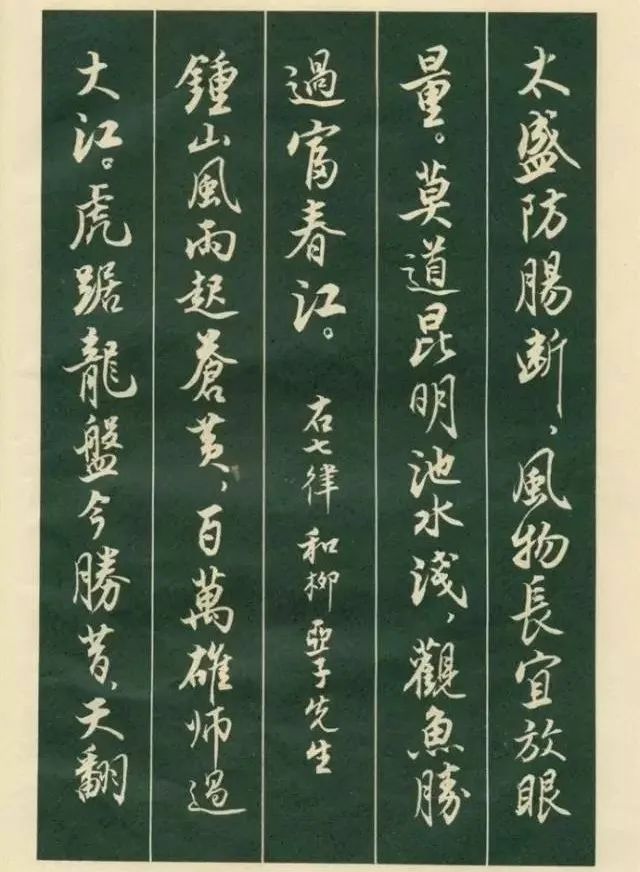 太盛防腸断，風物長宜放眼
量。莫道昆明池水淺，觀魚勝
過富春江。 右七律 和柳亞子先生
鍾山風雨起蒼黃，百萬雄师過
大江。虎踞龍盤今勝昔，天翻